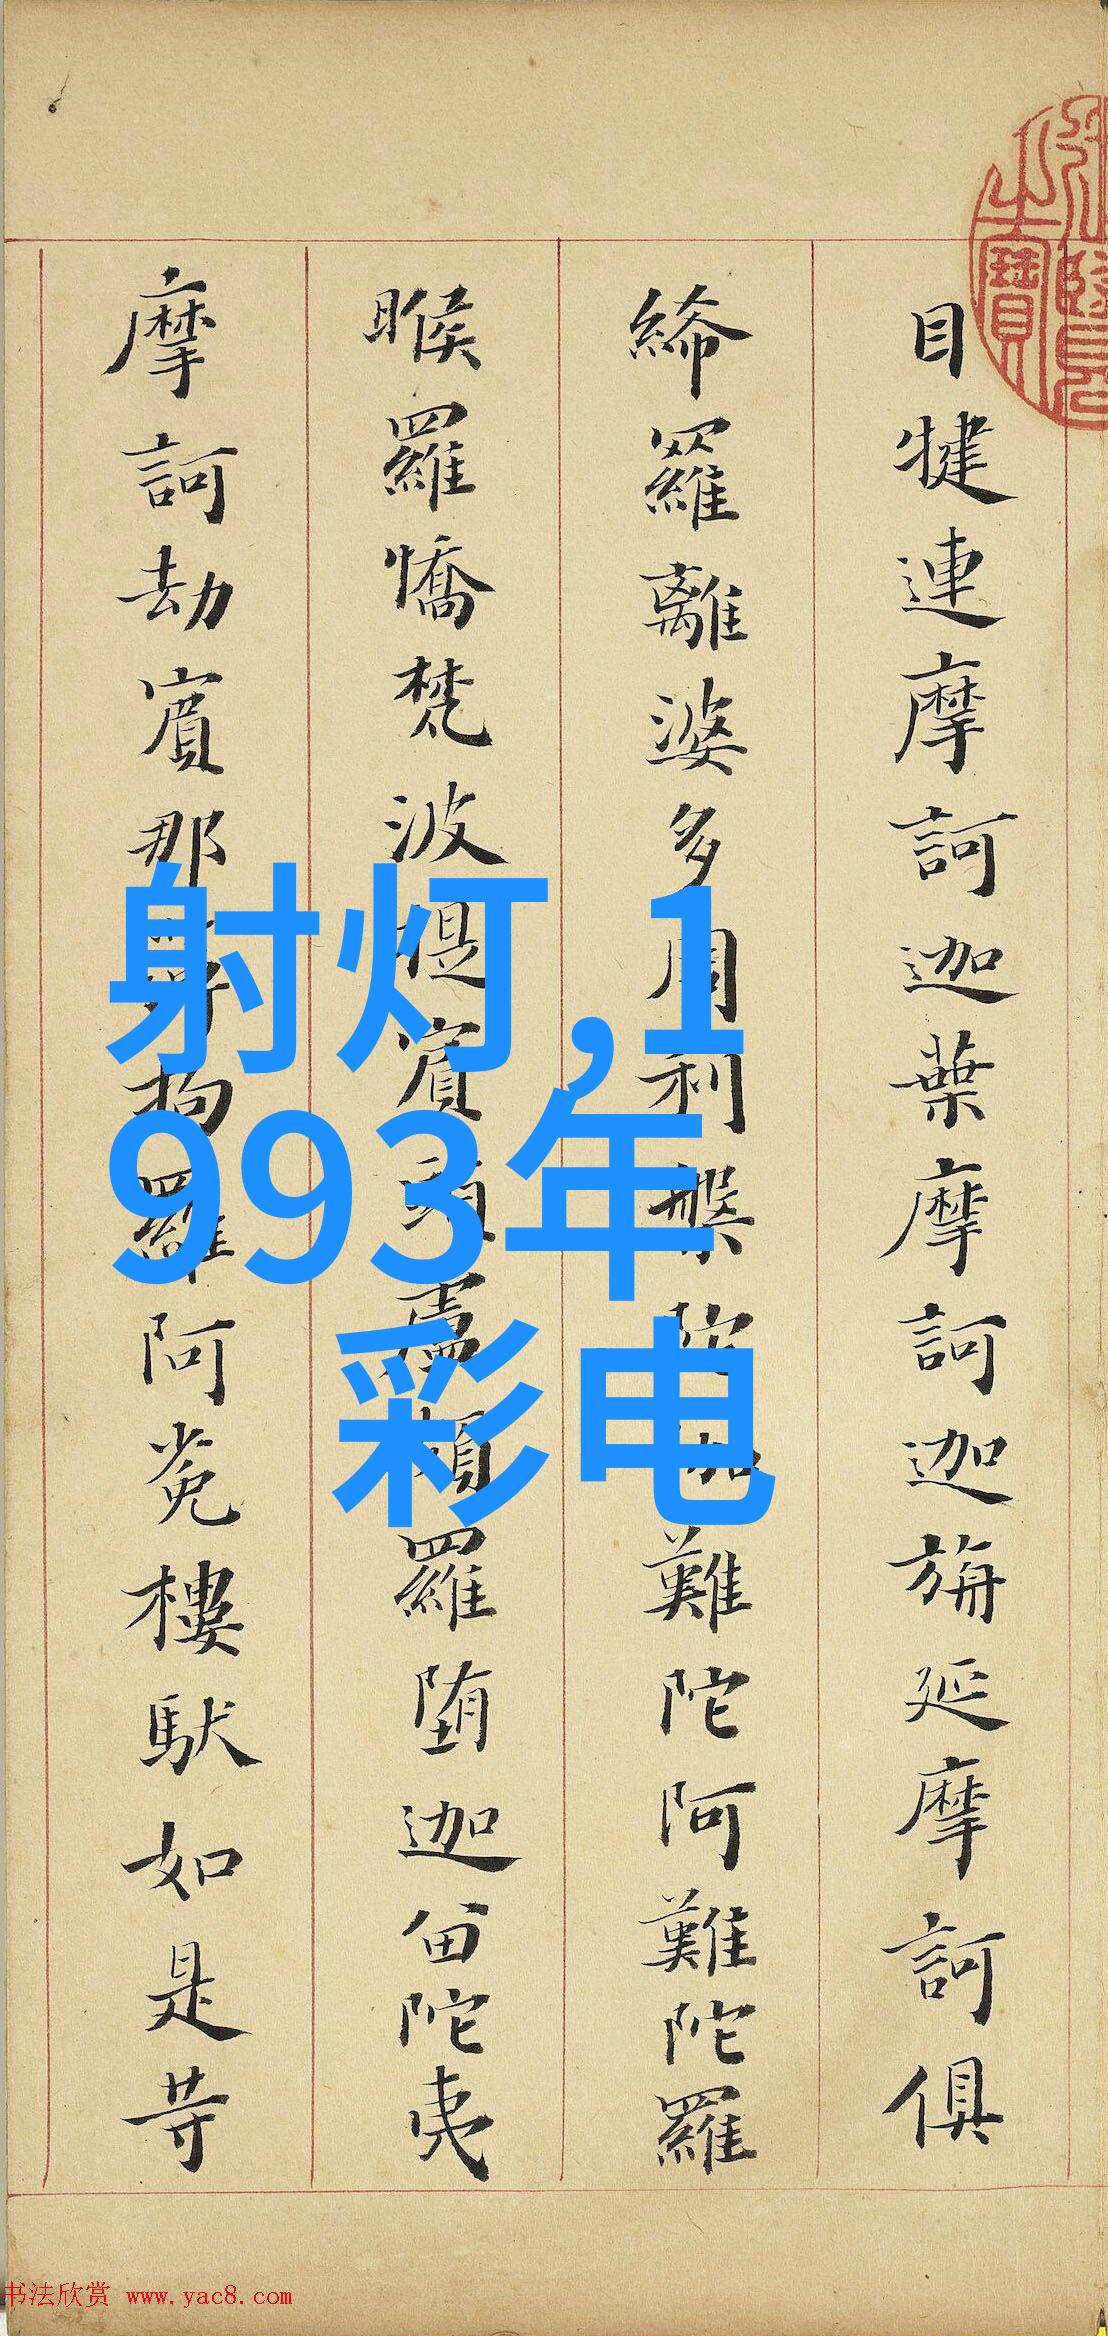 目犍連摩訶迦葉摩訶迦旃延摩訶俱
絺羅離婆多周利槃陀伽難陀阿難陀羅
睺羅憍梵波提賓頭盧頗羅堕迦留陀夷
摩訶劫賓那拘羅阿㝹樓馱如是等
射灯,1
993年
彩电
书法欣赏 www.yac8.com